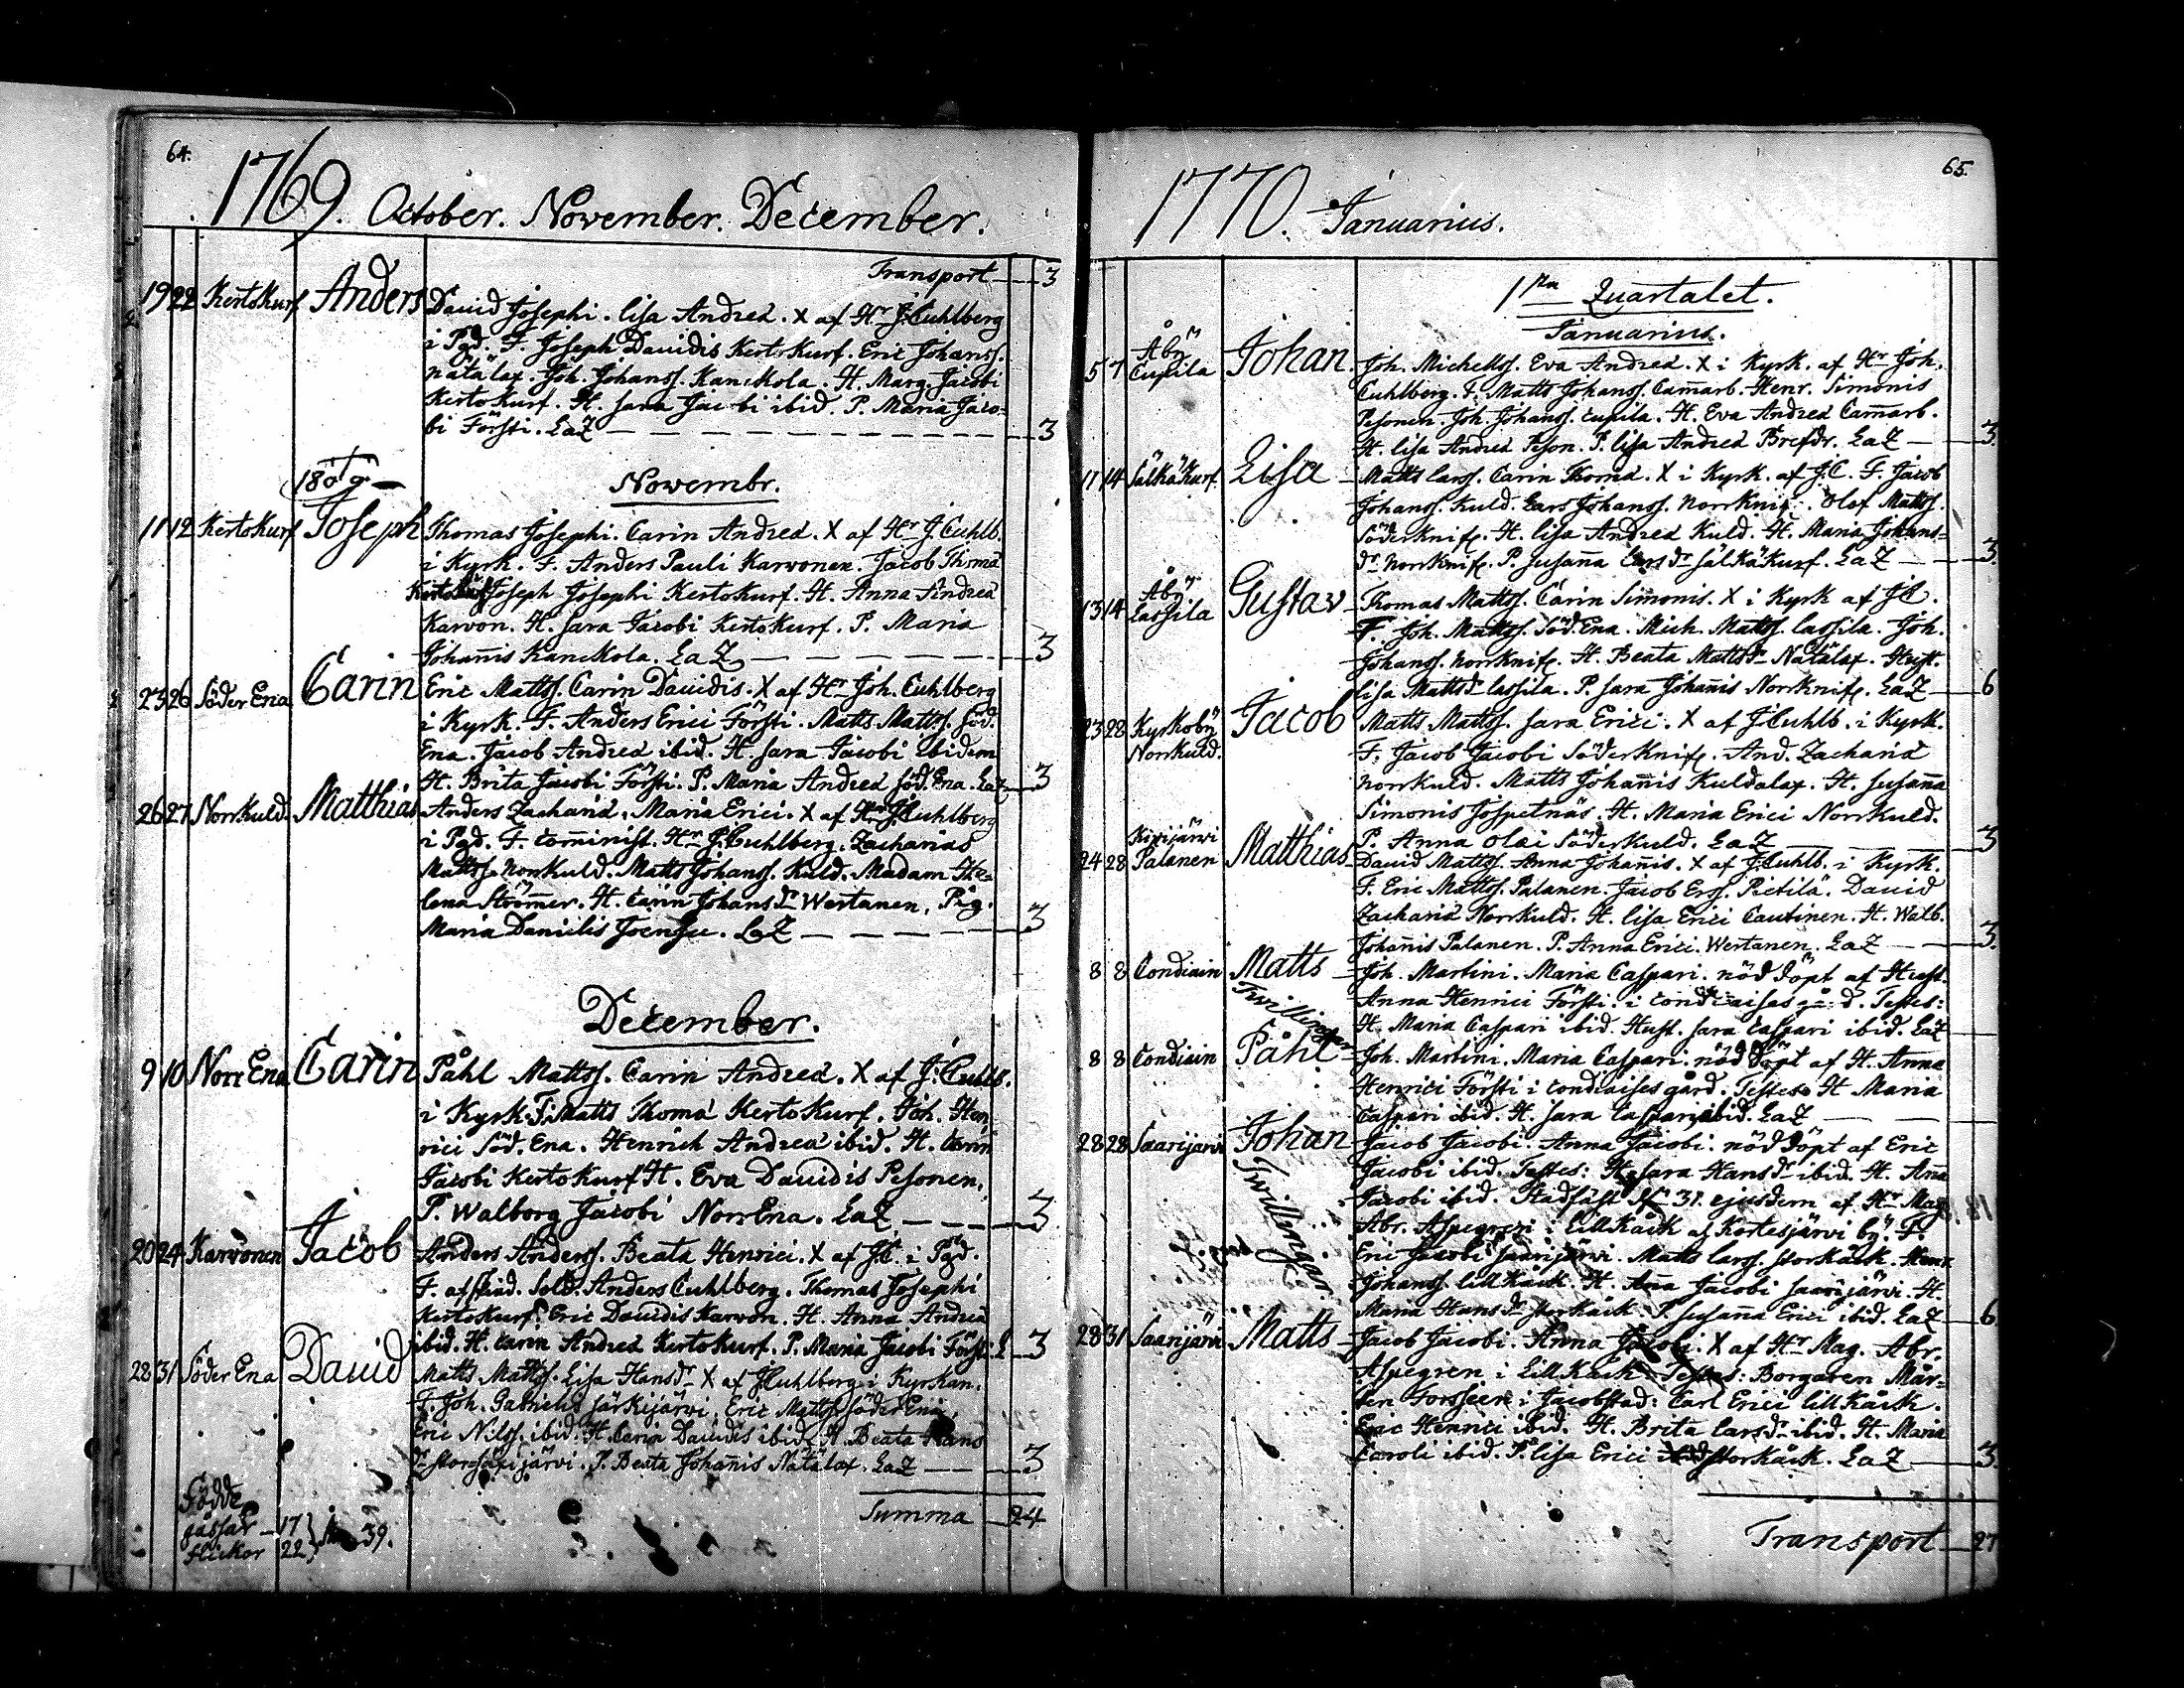 64.
1769. October. November. December.
Transport 3
19 22 Kertokurf Anders David Josephi. Lisa Andreæ. X af Hr J. Cuhlberg
i Pgd. F. Joseph Davidis Kertokurf. Eric Johanss.
Nätälax. Joh. Johanss. Kanckola. H. Marg. Jacobi
Kertokurf. H. Sara Jacobi ibid. P. Maria Jaco=
bi Försti. LaZ 3
Novembr.
11 12 Kertokurf Joseph Thomas Josephi. Carin Andreæ. X af Hr J. Cuhlb.
i Kyrk. F. Anders Pauli Karvonen. Jacob Thomæ
Kertokurf Joseph Josephi Kertokurf. H. Anna Andreæ
Karvon. H. Sara Jacobi Kertokurf. P. Maria
Johannis Kanckola. LaZ 3
23 26 Söder Ena Carin Eric Mattss. Carin Davidis. X af Hr Joh. Cuhlberg
i Kyrk. F. Anders Erici Försti. Matts Mattss. Söd.
Ena. Jacob Andreæ ibid. H. Sara Jacobi ibidem
H. Brita Jacobi Försti. P. Maria Andreæ Söd. Ena. LaZ 3
26 27 Norrkuld. Matthias Anders Zachariæ. Maria Erici. X af Hr J. Cuhlberg
i Pgd. F. Comminist. Hr J. Cuhlberg. Zacharias
Mattss. Norrkuld. Matts Johanss. Kuld. Madam He=
lena Strömer. H. Carin Johansdr Wertanen. Pig.
Maria Danielis Joensu. LaZ 3
December.
9 10 Norr Ena Carin Påhl Mattss. Carin Andreæ. X af J. Cuhlb.
i Kyrk. F. Matts Thomæ Kertokurf. Joh. Hen=
rici Söd. Ena. Henrich Andreæ ibid. H. Carin
Jacobi Kertokurf H. Eva Davidis Pesonen.
P. Walborg Jacobi Norr Ena. LaZ 3
20 24 Karvonen Jacob Anders Anderss. Beata Henrici. X af J.C. i Pgd.
F. Sold. Anders Cuhlberg. Thomas Josephi
Kertokurf. Eric Davidis Karvon. H. Anna Andreæ
ibid. H. Carin Andreæ Kertokurf. P. Maria Jacobi Först. 3
28 31 Söder Ena David Matts Mattss. Lisa Hansdr X af J. Cuhlberg i Kyrkan.
F. Joh. Gabrielis Särkijärvi. Eric Mattss. Söder Ena.
Eric Nilss. ibid. H. Carin Davidis ibid. H. Beata Hans
dr P. Beata Johannis Nätälax. LaZ 3
Födde
gåssar 17
flickor 22 39.
Summa 24
65.
1770. Januarius.
1sta Quartalet.
Januarius.
5 7 Åby Cupila Johan Joh. Michelss. Eva Andreæ. X i Kyrk. af Hr Joh.
Cuhlberg. F. Matts Johanss. Cammarb. Henr. Simonis
Pesonen. Joh. Johanss. Cupila. H. Eva Andreæ Cammarb.
H. Lisa Andreæ Peson. P. Lisa Andreæ LaZ 3
11 14 Sälkäkurf. Lisa Matts Larss. Carin Thomæ. X i Kyrk. af J.C. F. Jacob
Johanss. Kuld. Lars Johanss. Norrknif. Olof Mattss.
Söderknif. H. Lisa Andreæ Kuld. H. Maria Johans=
dr Norrknif. P. Susanna Larsdr Sälkäkurf. LaZ 3.
13 14 Åby Lassila Gustav Thomas Mattss. Carin Simonis. X i Kyrk af J.C.
F. Joh. Mattss. Söd. Ena. Mich. Mattss. Lassila. Joh.
Johanss. Norrknif. H. Beata Mattsdr Nätälax. Hust.
Lisa Mattsdr Lassila. P. Sara Johannis Norrknif. LaZ 6
23 28 Kyrkoby Norrkuld. Jacob Matts Mattss. Sara Erici. X af J. Cuhlb. i Kyrk.
F. Jacob Jacobi Söderknif. And. Zachariæ
Norrkuld. Matts Johannis Kuldalax. H. Susanna
Simonis H. Maria Erici Norrkuld.
P. Anna Olai Söderkuld. LaZ 3
24 28 Palanen Matthias David Mattss. Anna Johannis. X af J. Cuhlb. i Kyrk.
F. Eric Mattss. Palanen. Jacob Erss. Pietilä. David
Zachariæ Norrkuld. H. Lisa Erici Cautinen. H. Walb.
Johannis Palanen. P. Anna Erici Wertanen. LaZ 3.
8 8 Condiain Matts Joh. Martini. Maria Caspari. nöd döpt af Hust.
Anna Henrici Försti. i Condiaises gård. Testes:
H. Maria Caspari ibid. Hust. Sara Caspari ibid. LaZ
Twillingar
8 8 Condiain Påhl Joh. Martini. Maria Caspari. nöd döpt af H. Anna
Henrici Försti i Condiaises gård. Testes H Maria
Caspari ibid. H. Sara Caspari ibid. LaZ
28 28 Saarijärvi Johan Jacob Jacobi. Anna Jacobi. nöd döpt af Eric
Jacobi ibid. Testes: H. Sara Hansdr ibid. H. Anna
Jacobi ibid. Stadfäst d. 31. ejusdem af Hr Mag.
Abr. Aspegren i Lillkåck af Kortesjärvi by. F.
Eric Jacobi Saarijärvi. Matts Larss. Storkåck. Henr.
Johanss. Lillkåck. H. Anna Jacobi Saarijärvi. H.
Maria Hansdr Storkåck. P. Susanna Erici ibid. LaZ 6
Twillingar
28 31 Saarijärvi Matts Jacob Jacobi. Anna Jacobi. X af Hr Mag. Abr.
Aspegren i Lillkåck. Testes: Borgaren Mår=
ten Forsseen i Jacobstad: Carl Erici Lillkåck.
Eric Henrici ibid. H. Brita Larsdr ibid. H. Maria
Caroli ibid. P. Lisa Erici Storkåck. LaZ 3.
Transport 27